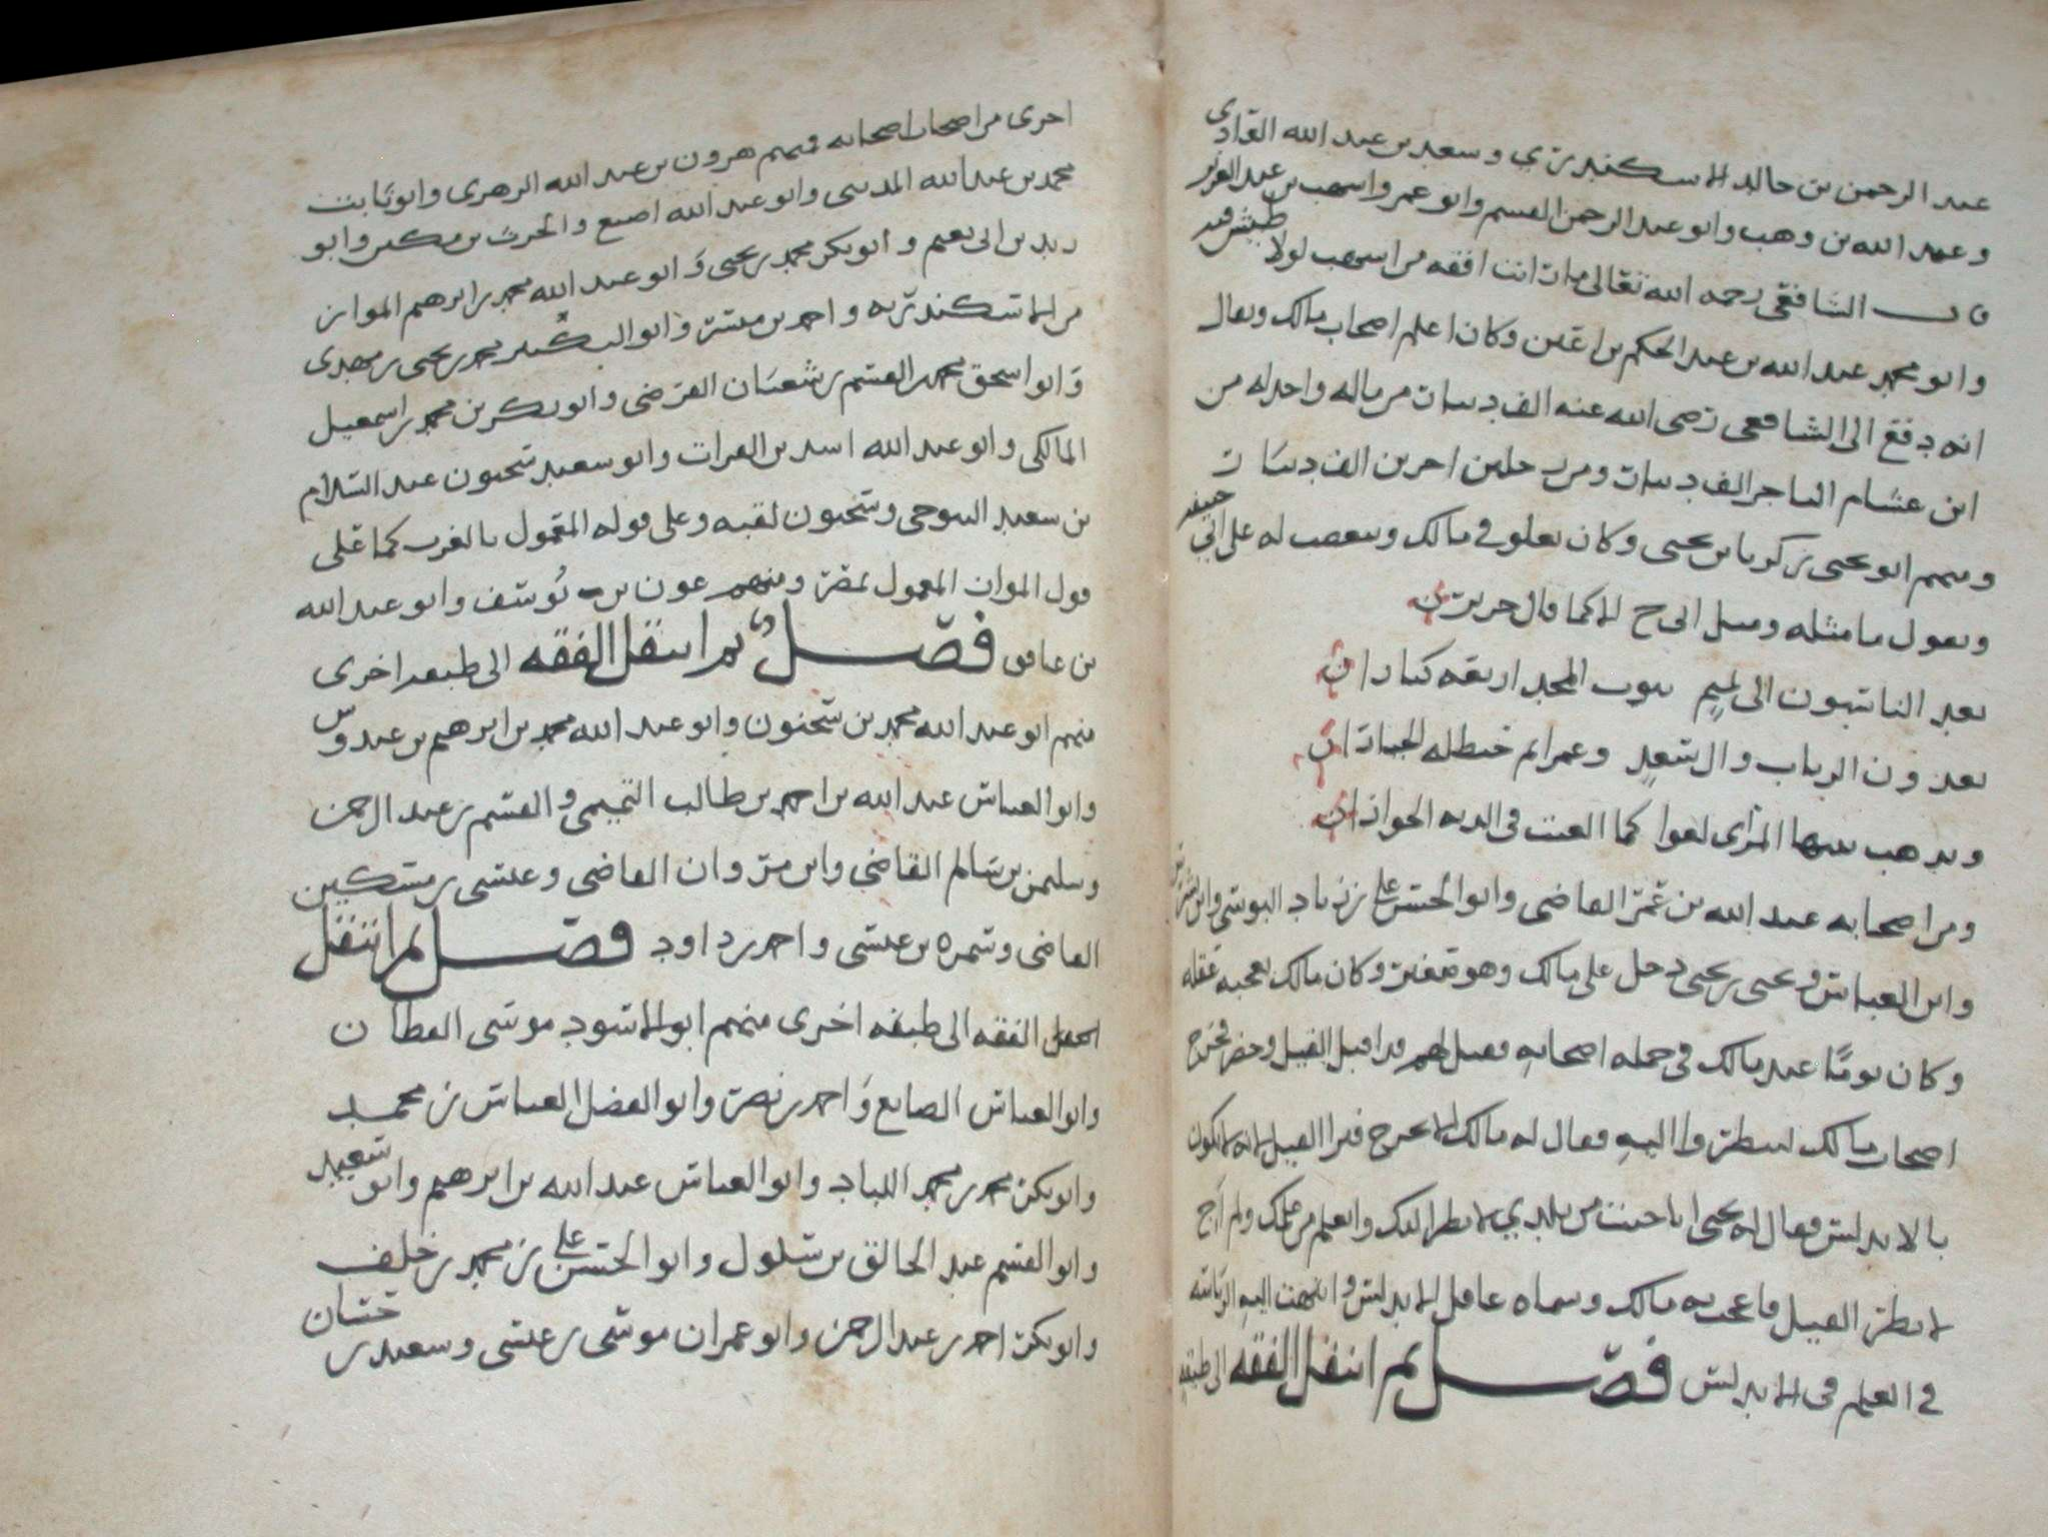 عبد الرحمن بن خالد الاسكندري وسعد بن عبد الله القادري
وعبد الله بن وهب وابو عبد الرحمن القسم وابو عمرو اشهب بن عبد العزيز
قال الشافعي رحمه الله تعالى ما رايت افقه من اشهب لولا طيش فيه
وابو محمد عبد الله بن عبد الحكم بن اعين وكان اعلم اصحاب مالك ويقال
انه دفع الى الشافعي رضي الله عنه الف دينار من ماله واخذ له من
ابن عسامه التاجر الف دينار ومن رجلين اخرين الف دينار
ومنهم ابو يحيى زكريا بن يحيى وكان يغلو في مالك ويتعصب له على ابي حنيفه
ويقول ما مثله ومثل ابي ح الا كما قال جرير
يعد الناسبون الى تميم بيوت المجد اربعة كبارا
يعدون الرباب وال سعد وعمرا ثم حنظلة الخيارا
ويذهب بينها المرئي لغوا كما الغيت في الدية الحوارا
ومن اصحابه عبد الله بن عمر القاضي وابو الحسن علي بن زياد التونسي وابن اشرس
وابو العباس ويحيى بن يحيى دخل على مالك وهو صغير وكان مالك يعجبه عقله
وكان يوما عند مالك في جملة اصحابه فقيل لهم قد اقبل الفيل وحضر فخرج
اصحاب مالك لينظروا اليه فقال له مالك لم لا تخرج فترى الفيل لانه لا يكون
بالاندلس فقال له يحيى انا جئت من بلدي لانظر اليك واتعلم من علمك ولم اجئ
لانظر الفيل فاعجب به مالك وسماه عاقل الاندلس وانتهت اليه الرياسه
في العلم في الاندلس فصل ثم انتقل الفقه الى طبقه
اخرى من اصحاب اصحابه فمنهم هرون بن عبد الله الزهري وابو ثابت
محمد بن عبد الله المدني وابو عبد الله اصبغ والحرث بن مسكين وابو
زيد بن ابي نعيم وابو بكر محمد بن يحيى وابو عبد الله محمد بن ابرهيم المواز
من الاسكندريه واحمد بن ميسر وابو البكير محمد بن يحيى بن مهدي
وابو اسحق محمد بن القسم بن شعبان القرضي وابو بكر بن محمد بن اسمعيل
المالكي وابو عبد الله اسد بن الفرات وابو سعيد سحنون عبد السلام
بن سعيد التنوخي وسحنون لقبه وعلى قوله المعمول بالغرب كما على
قول المواز المعمول بمصر ومنهم عون بن يوسف وابو عبد الله
بن عافق فصل ثم انتقل الفقه الى طبقه اخرى
منهم ابو عبد الله محمد بن سحنون وابو عبد الله محمد بن ابرهيم بن عبدوس
وابو العباس عبد الله بن احمد بن طالب التميمي والقسم بن عبد الرحمن
وسليمن بن سالم القاضي وابن مروان القاضي وعيسى بن مسكين
القاضي وسمره بن عيسى واحمد بن داود فصل ثم انتقل
الفقه الى طبقه اخرى منهم ابو الاسود موسى القطان
وابو العباس الصايغ واحمد بن نصر وابو الفضل العباس بن محمد
وابو بكر محمد بن محمد اللباد وابو العباس عبد الله بن ابرهيم وابو سعيد
وابو القسم عبد الخالق بن شلول وابو الحسن علي بن محمد بن خلف
وابو بكر احمد بن عبد الرحمن وابو عمران موسى بن عيسى وسعيد بن حسان